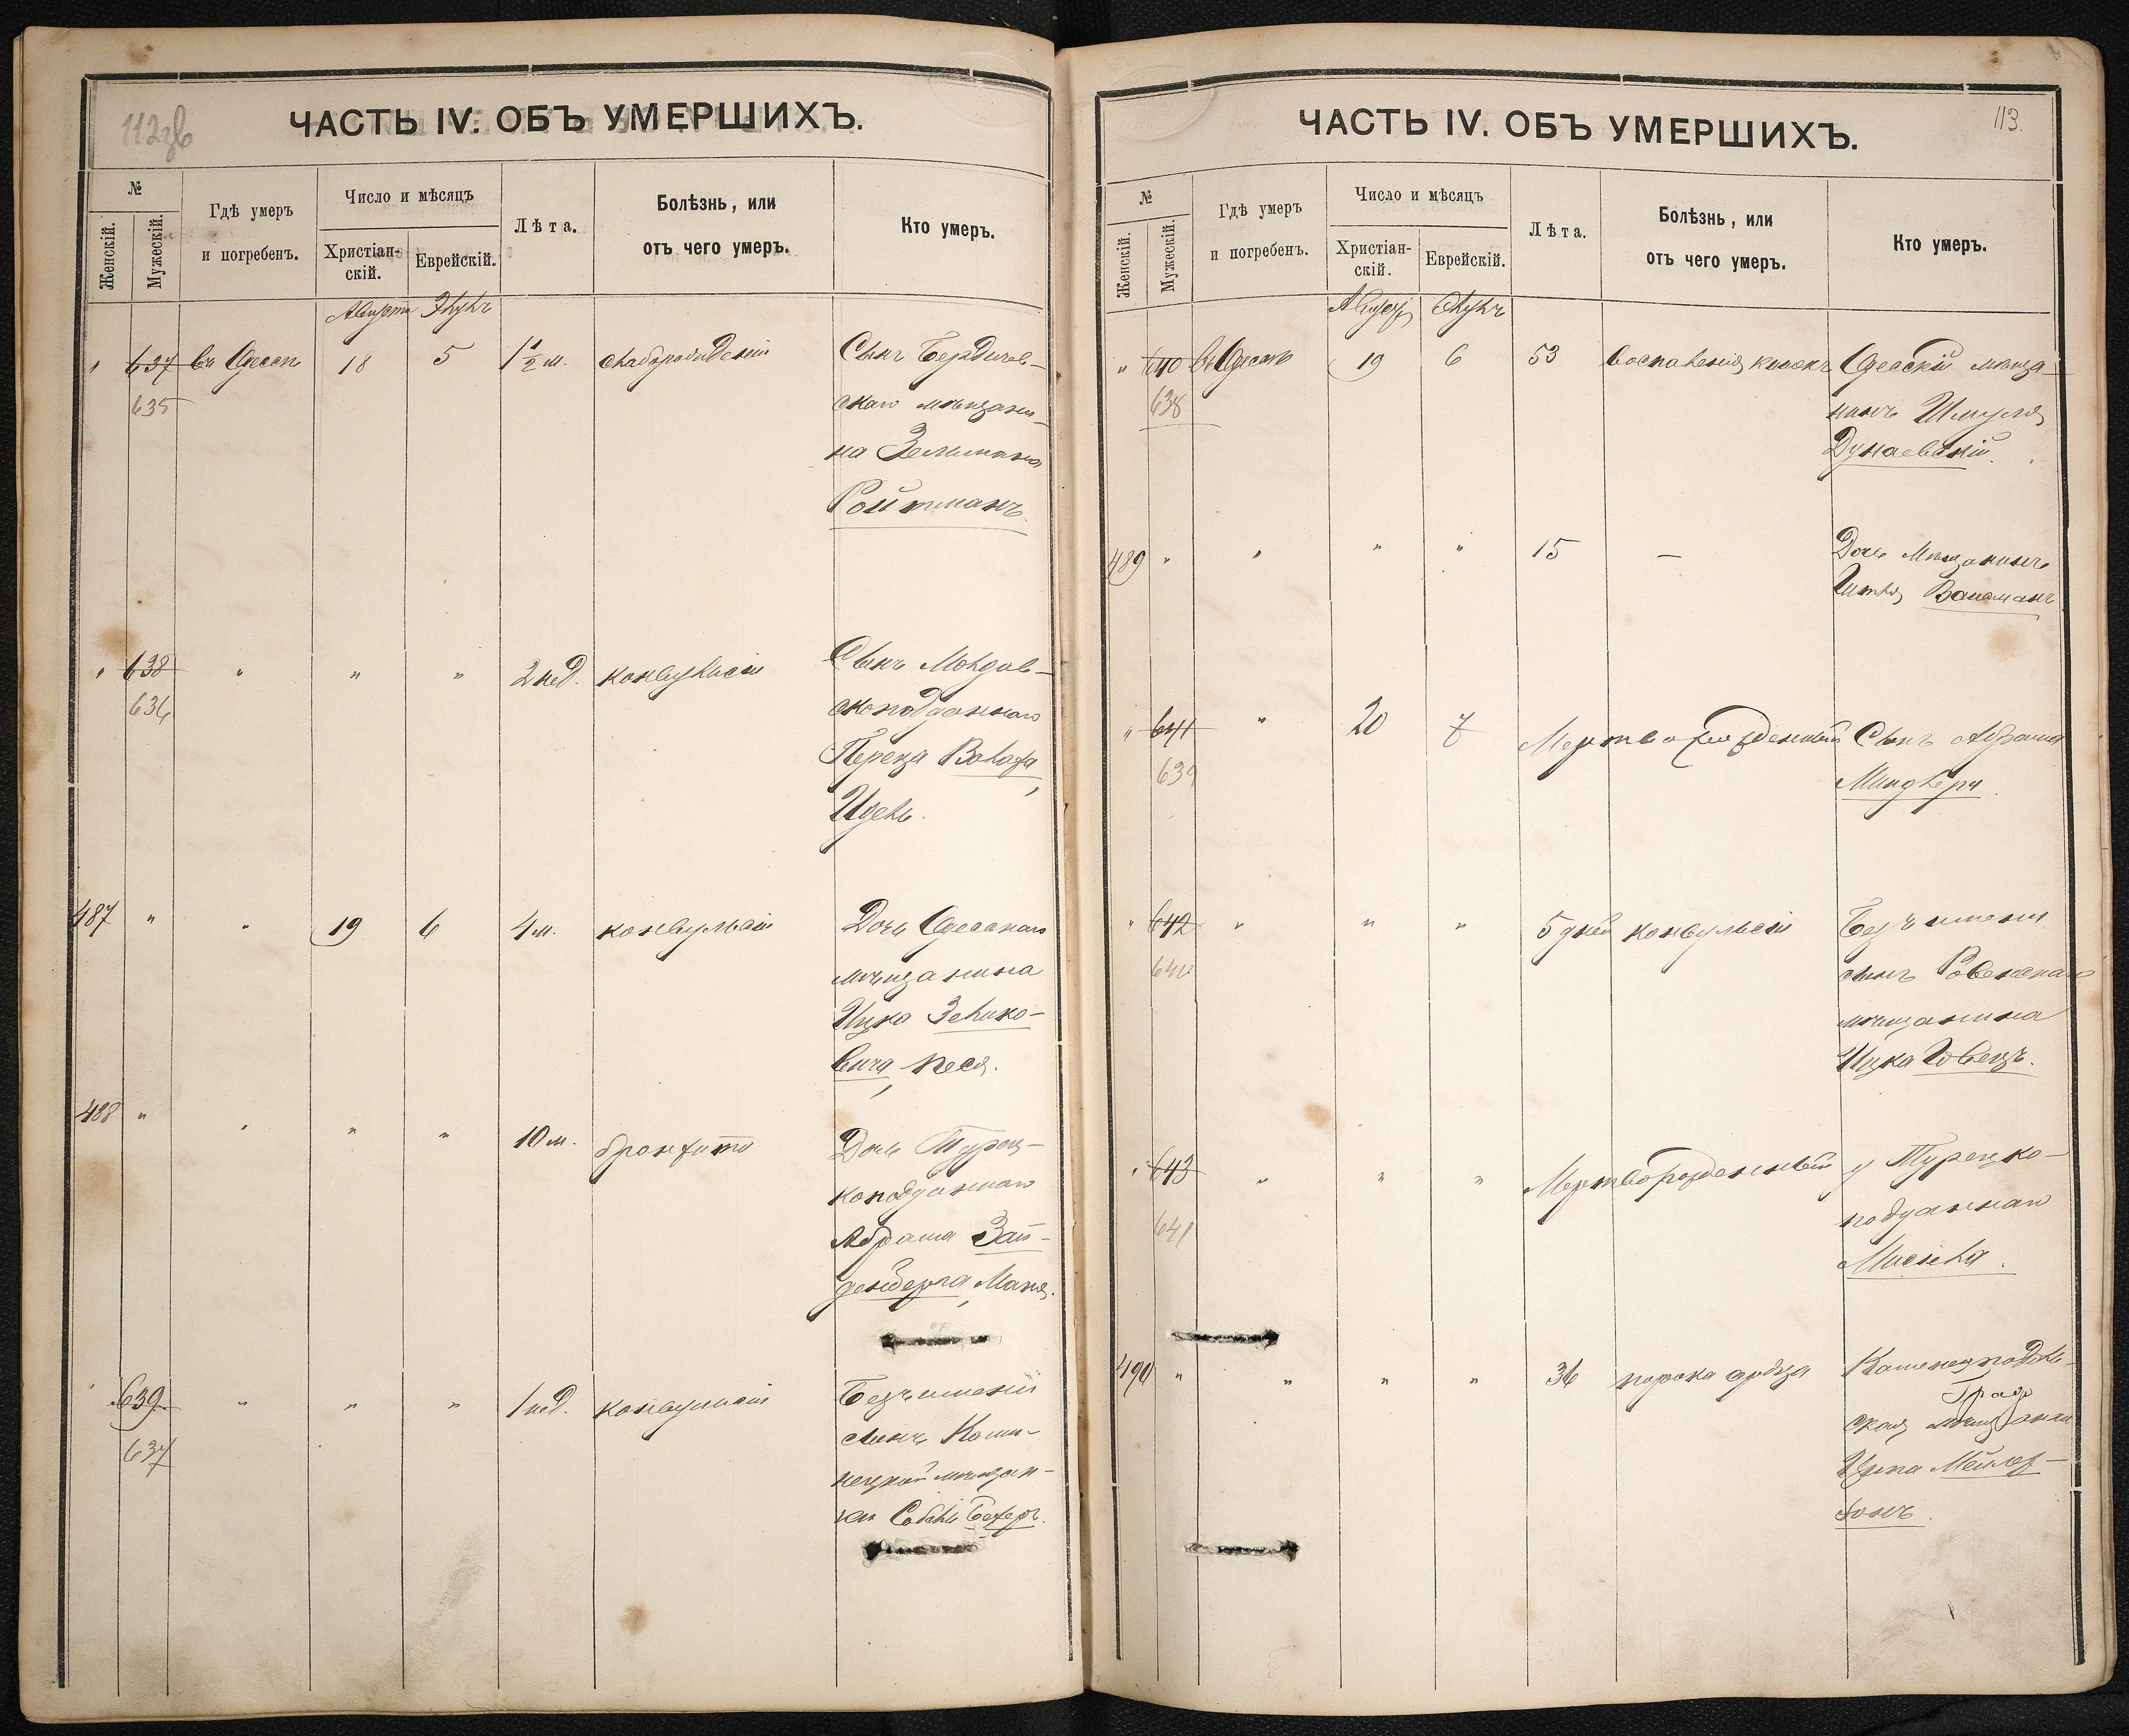 112зв
ЧАСТЬ IV. ОБЪ УМЕРШИХЪ.
№
Женскій.
Мужескій.
Гдѣ умеръ
и погребенъ.
Число и мѣсяцъ
Христіан-
скій.
Еврейскій.
Лѣта.
Болѣзнь, или
отъ чего умеръ.
Кто умеръ.
Августъ Элулъ
" 637 въ Одессѣ 18 5 1½ м. слаборожденій Сынъ Бердичев-
635 скаго мѣщани-
на Зельмана
Ройтманъ.
" 638 " " " 2 нед. конвульсіи Сынъ Молдав-
636 скоподданнаго
Переца Волоха,
Идель.
487 " " 19 6 4 м. конвульсіи Дочь Одесскаго
мѣщанина
Ицка Зелико-
вича, Песя.
488 " " " " 10 м. бронхитъ Дочь Турец-
коподданнаго
Абрама Зай-
денберга, Маня.
" 639 " " " 1 нед. конвульсіи Безъ имени
637 сынъ Каме-
нецкой мѣщан-
ки Собель Бехеръ.
113.
ЧАСТЬ IV. ОБЪ УМЕРШИХЪ.
№
Женскій.
Мужескій.
Гдѣ умеръ
и погребенъ.
Число и мѣсяцъ
Христіан-
скій.
Еврейскій.
Лѣта.
Болѣзнь, или
отъ чего умеръ.
Кто умеръ.
Августъ Элулъ
" 640 въ Одессѣ 19 6 53 воспаленія кишекъ Одесскій мѣща-
638 нинъ Шмуля
Дунаевскій.
489 " " " " 15 — Дочь Мѣщанинъ
Гитля Вайсманъ
" 641 " 20 7 Мертворожденный Сынъ Абрама
639 Мindлера.
" 642 " " " 5 дней конвульсіи Безъ имени
640 сынъ Ровенскаго
мѣщанина
Ицка Швецъ.
" 643 " " " Мертворожденный у Турецко-
641 подданнаго
Мисъка.
490 " " " " 36 порока сердца Каменецподоль-
град
ская мѣщанка
Ципа Мейлах-
сонъ.